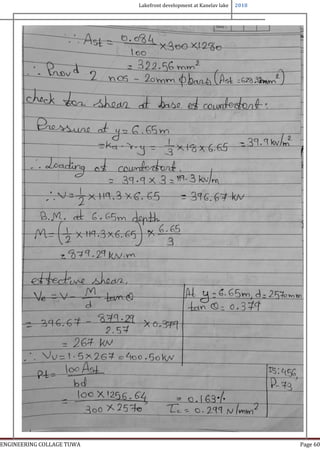 Lakefront development at Kanelav lake 2018
∴ Ast = 0.084/100 ×300×1280
= 322.56 mm²
∴ Provd 2 nos - 20mm ϕ bars (Ast = 628.32mm²)
check for shear at base of counterfort:
Pressure at y = 6.65m
= ka·γ·y = 1/3 ×18×6.65 = 39.9 kN/m²
∴ Loading at counterfort.
= 39.9 × 3 = 119.3 kN/m
∴ V = 1/2 × 119.3 × 6.65 = 396.67 kN
B.M. at 6.65m depth
M = (1/2 × 119.3×6.65) × 6.65/3
= 879.29 kN.m
effective shear,
Ve = V - M/d tan θ
At y = 6.65m, d = 2570mm
tan θ = 0.379
= 396.67 - 879.29/2.57 × 0.379
= 267 kN
∴ Vu = 1.5×267 = 400.50 kN
Pt = 100 Ast/bd
IS:456,
P-73
= 100 × 1256.64/300 × 2570 = 0.163%
τc = 0.299 N/mm²
ENGINEERING COLLAGE TUWA Page 60